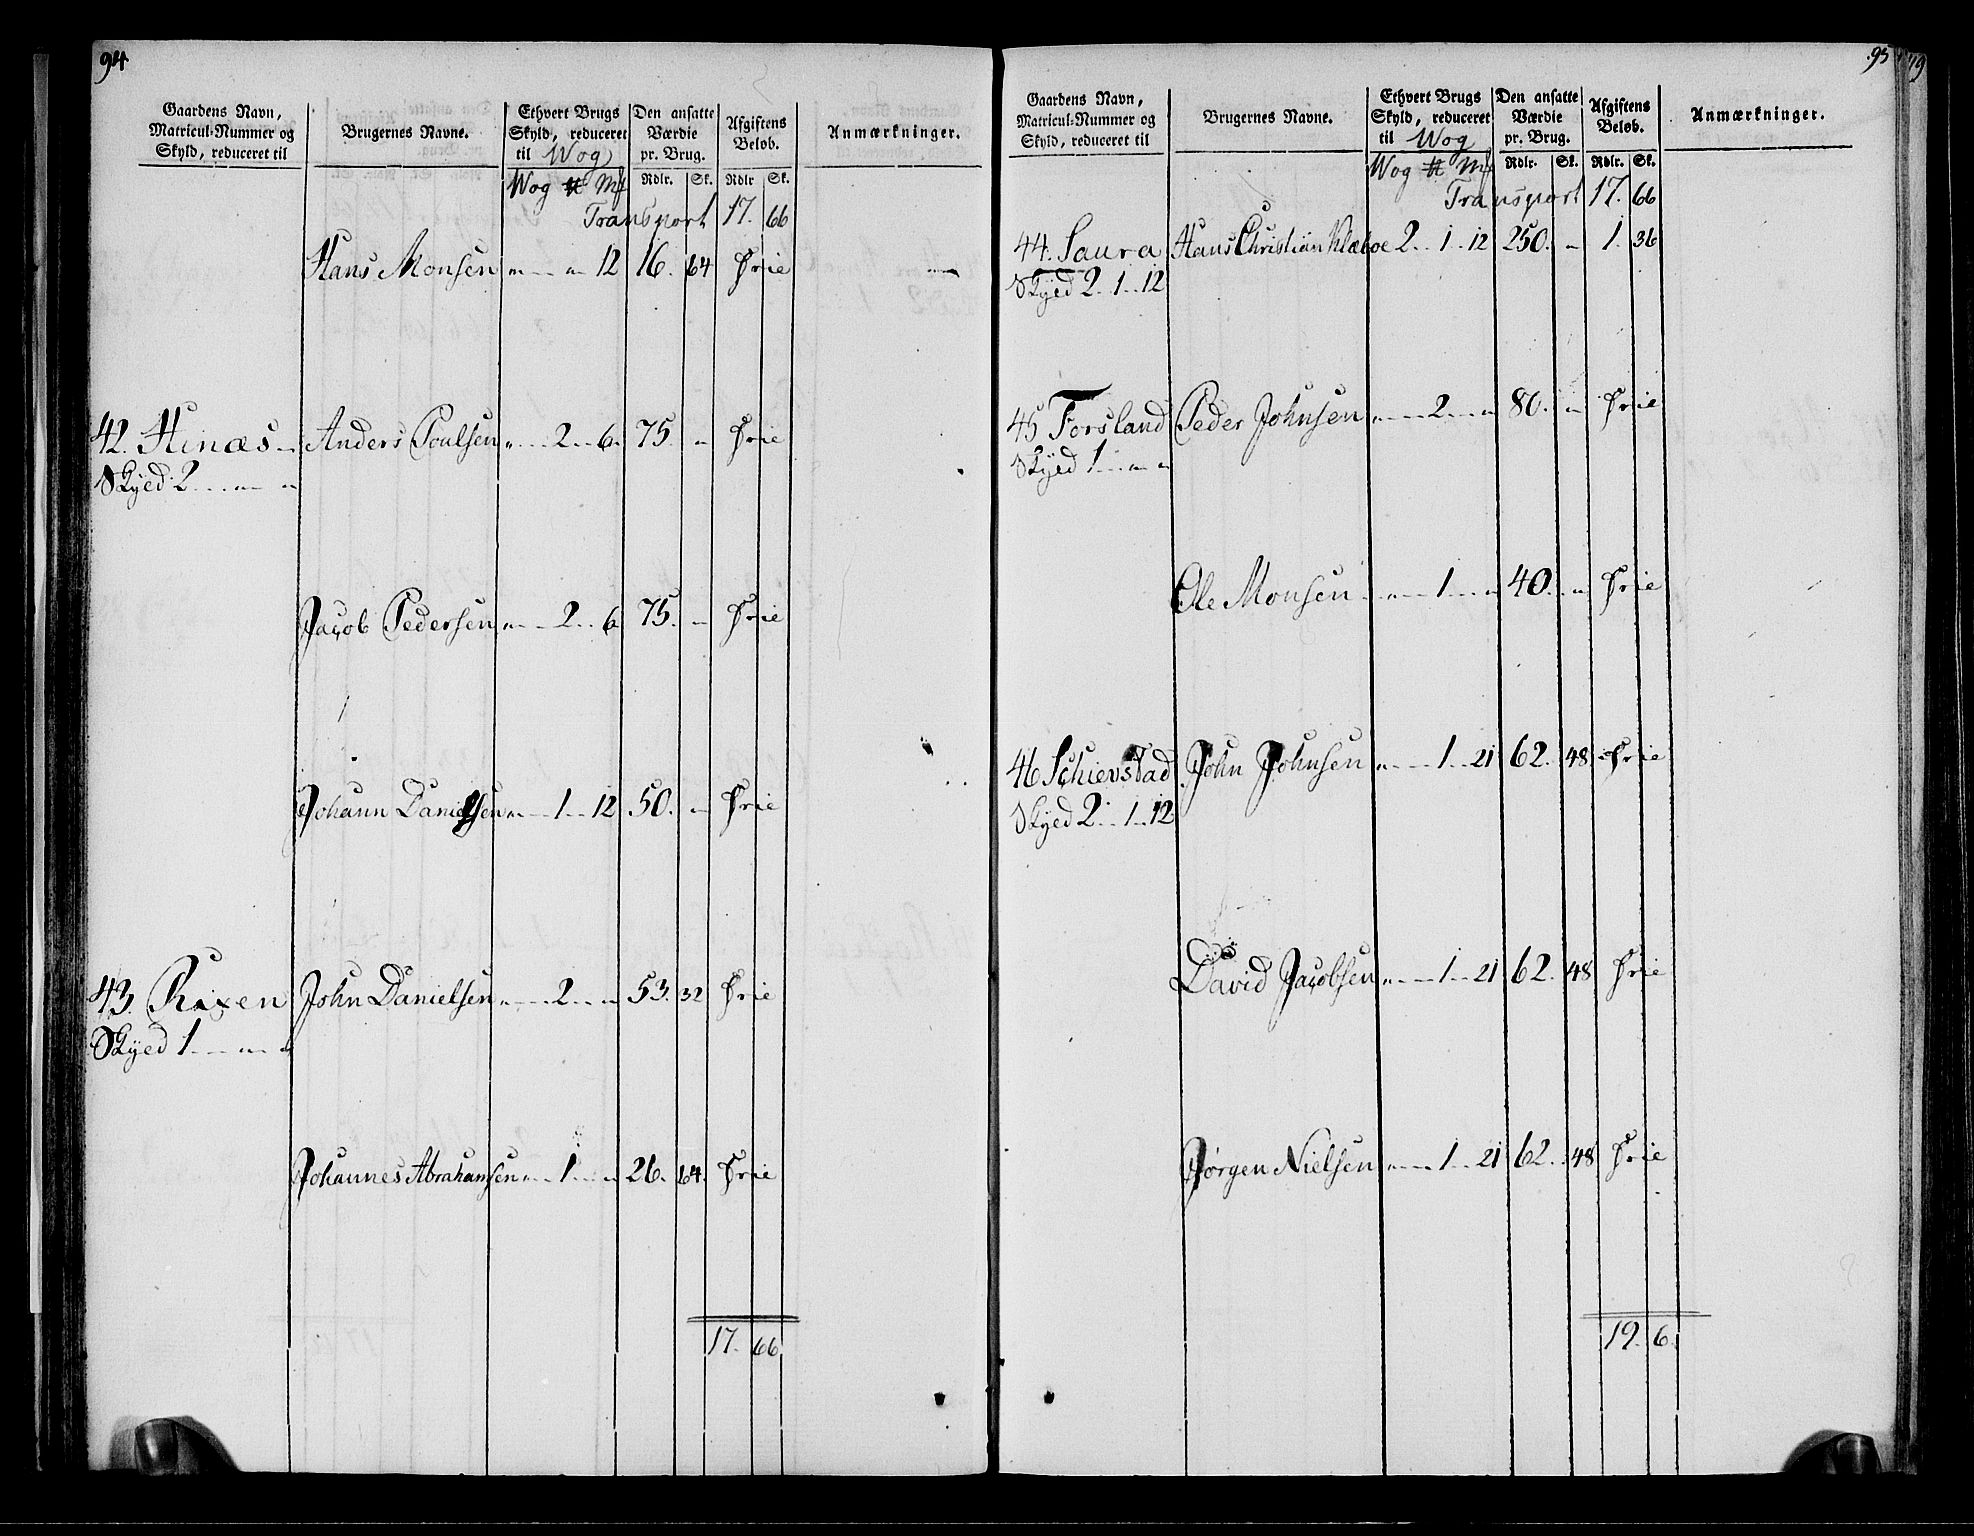 94
Gaardens Navn, Matricul-Nummer og Skyld, reduceret til | Brugernes Navne. | Ethvert Brugs Skyld, reduceret til Wog | Den ansatte Værdie pr. Brug. | Afgiftens Beløb. | Anmærkninger.
Wog ℔ Mk | Rdlr. Sk. | Rdlr Sk.
Transport 17. 66
Hans Monsen „ „ 12 16. 64 Frie
42. Hinæs Anders Poulsen „ 2 6 75. „ Frie
Skyed 2 „ „
Jacob Pedersen „ 2 6 75. „ Frie
Johann Danielsen „ 1 12 50. „ Frie
43. Rixen John Danielsen „ 2 „ 53. 32 Frie
Skyed 1 „ „
Johannes Abrahamsen „ 1 „ 26. 64. Frie
17. 66
95
Gaardens Navn, Matricul-Nummer og Skyld, reduceret til | Brugernes Navne. | Ethvert Brugs Skyld, reduceret til Wog | Den ansatte Værdie pr. Brug. | Afgiftens Beløb. | Anmærkninger.
Wog ℔ Mk | Rdlr. Sk. | Rdlr. Sk.
Transport 17. 66
44. Saura Hans Christian Klæboe 2 1 12 250. „ 1. 36
Skyed 2 1 12
45 Forsland Peder Johnsen „ 2 „ 80. „ Frie
Skyed 1 „ „
Ole Monsen „ 1 „ 40. „ Frie
46 Schievstad John Johnsen „ 1 21 62. 48 Frie
Skyed 2 1 12
David Jacobsen „ 1 21 62. 48 Frie
Jørgen Nielsen „ 1 21 62. 48 Frie
19. 6.